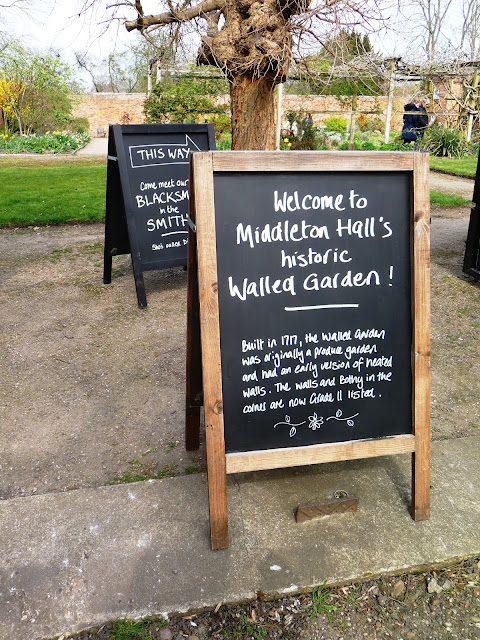 THIS WAY
Come meet our
BLACKSM
in the
SMITH
Welcome to
Middleton Hall's
historic
Walled Garden!
Built in 1717, the Walled Garden
was originally a produce garden
and had an early version of heated
walls. The walls and Bothy in the
corner are now Grade II listed.